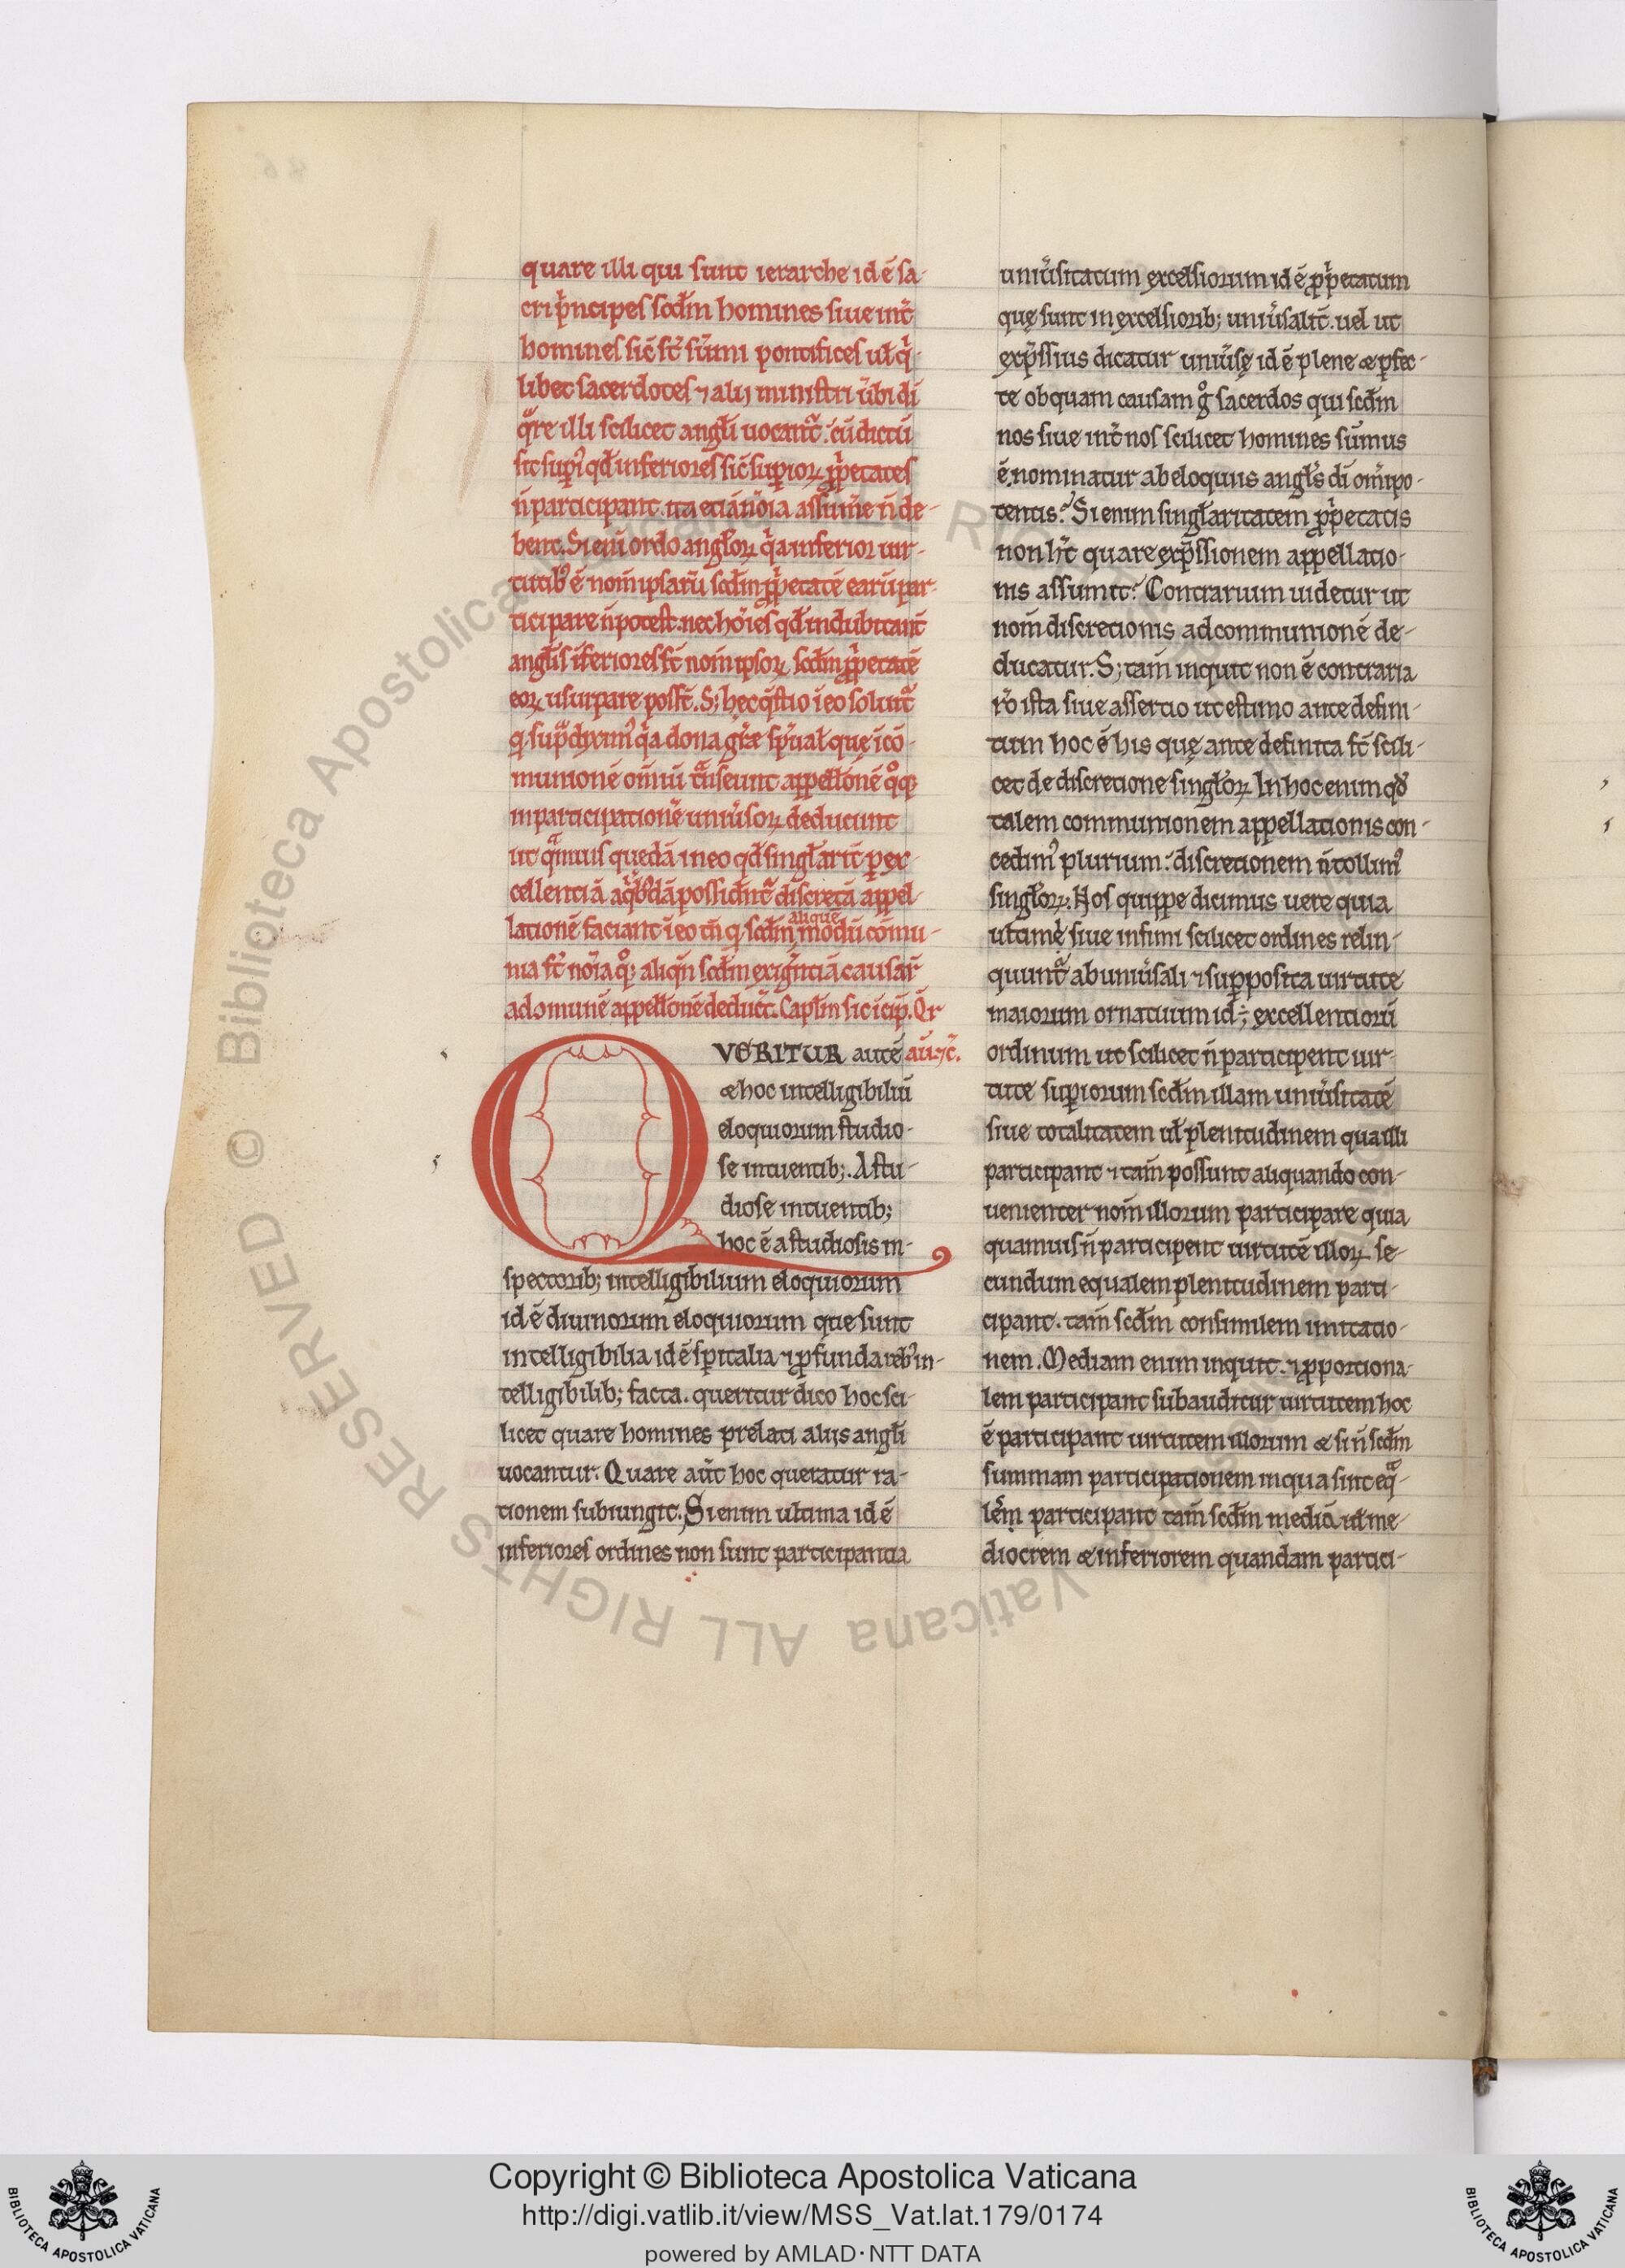 quare illi qui sunt ierarche id ē sa-
cri p̓ncipes scdm̄ homines siue int̄
homines sic̄ st̄ sūmi pontifices ul̄ q̓-
libet sacerdotes ⁊ alij ministri ubi di
q̄re illi scilicet angl̓i uocant̄. cū dictū
sit sup̓ qd̄ inferiores sic̄ supioꝝ p̓p̓etates
n̄ participant. ita etiā nōia assum̄e n̄ de-
bent. Si eni ordo angl̓oꝝ q̓a inferior uir-
tutib᾽ ē nom̄ ipsarū scdm̄ p̓p̓etatē earū par-
ticipare n̄ potest. nec hōies qd̄ indubitant̄
angl̓is īferiores st̄ nom̄ ipsoꝝ scdm̄ p̓p̓etatē
eoꝝ usurpare posst̄. S; hec q̄stio ī eo soluit̄
q sup̓dixim᾽ q̓a dona gr̄e sp̄ual̄ quę ī cō-
munionē om̄iū t̄nseunt appell̄onē q̊q;
in participationē uniūsoꝝ deducunt
ut q̄muis quedā in eo qd̄ singl̓arit̄ p̱ ex-
cellentiā a q̓b᾽dā possidnt̄ discretā appel-
lationē faciant ī eo tn̄ q scdm̄ modū cōmu-
aliquē
nia st̄ nōia q̊; aliqn̄ scdm̄ exig̓ntiā causaꝝ
ad omunē appell̄onē deduc̄t. Capl̄m sic īcip̄. Q̄r
VERITUR autē aū. ⁊c̄.
⁊ hoc intelligibiliū
eloquiorum studio-
se intuentib;. A stu-
diose intuentib;
hoc ē a studiosis in-
spectorib; intelligibilium eloquiorum
id ē diuinorum eloquiorum que sunt
intelligibilia id ē spiritalia ⁊ p̱funda reb᾽ in-
telligibilib; facta. queritur dico hoc sci-
licet quare homines prelati alijs angl̓i
uocantur. Quare aūt hoc queratur ra-
tionem subiungit. Si enim ultima id ē
inferiores ordines non sunt participantia
uniūsitatum excelsiorum id ē p̱p̓etatum
quę sunt in excelsiorib; uniūsalit̄. uel ut
exp̄ssius dicatur uniūsę id ē plene ⁊ p̱fec-
te ob quam causam g̊ sacerdos qui scdm̄
nos siue int̄ nos scilicet homines sum̄us
ē, nominatur ab eloquiis angl̓s di om̄ipo-
tentis? Si enim singl̓aritatem p̱p̓etatis
non h̄t quare exp̄ssionem appellatio-
nis assumit? Contrarium uidetur ut
nom̄ discretionis ad communionē de-
ducatur. S; tam̄ inquit non ē contraria
r̄o ista siue assertio ut estimo ante defini-
tum hoc ē his quę ante definita st̄ scili-
cet de discretione singl̓oꝝ. In hoc enim qd̄
talem communionem appellationis con-
cedim᾽ plurium. discretionem n̄ tollim᾽
singl̓oꝝ. Nos quippe dicimus uere quia
ultimę siue infimi scilicet ordines relin-
quunt̄ ab uniūsali ⁊ supposita uirtute
maiorum ornatuum id ÷ excellentiorū
ordinum ut scilicet n̄ participent uir-
tute supiorum scdm̄ illam uniūsitatē
siue totalitatem ul̄ plenitudinem qua illi
participant ⁊ tam̄ possunt aliquando con-
uenienter nom̄ illorum participare quia
quamuis n̄ participent uirtutē illoꝝ se-
cundum equalem plenitudinem parti-
cipant. tam̄ scdm̄ consimilem imitatio-
nem. Mediam enim inquit. ⁊ p̱portiona-
lem participant subauditur uirtutem hoc
ē participant uirtutem illorum ⁊ si n̄ scdm̄
summam participationem in qua sint eq̄-
les̄ participant tam̄ scdm̄ mediā id̄ me-
diocrem ⁊ inferiorem quandam partici-
Copyright © Biblioteca Apostolica Vaticana
http://digi.vatlib.it/view/MSS_Vat.lat.179/0174
powered by AMLAD·NTT DATA
BIBLIOTECA APOSTOLICA VATICANA
BIBLIOTECA APOSTOLICA VATICANA
© Biblioteca Apostolica Vaticana ALL RIGHTS RESERVED